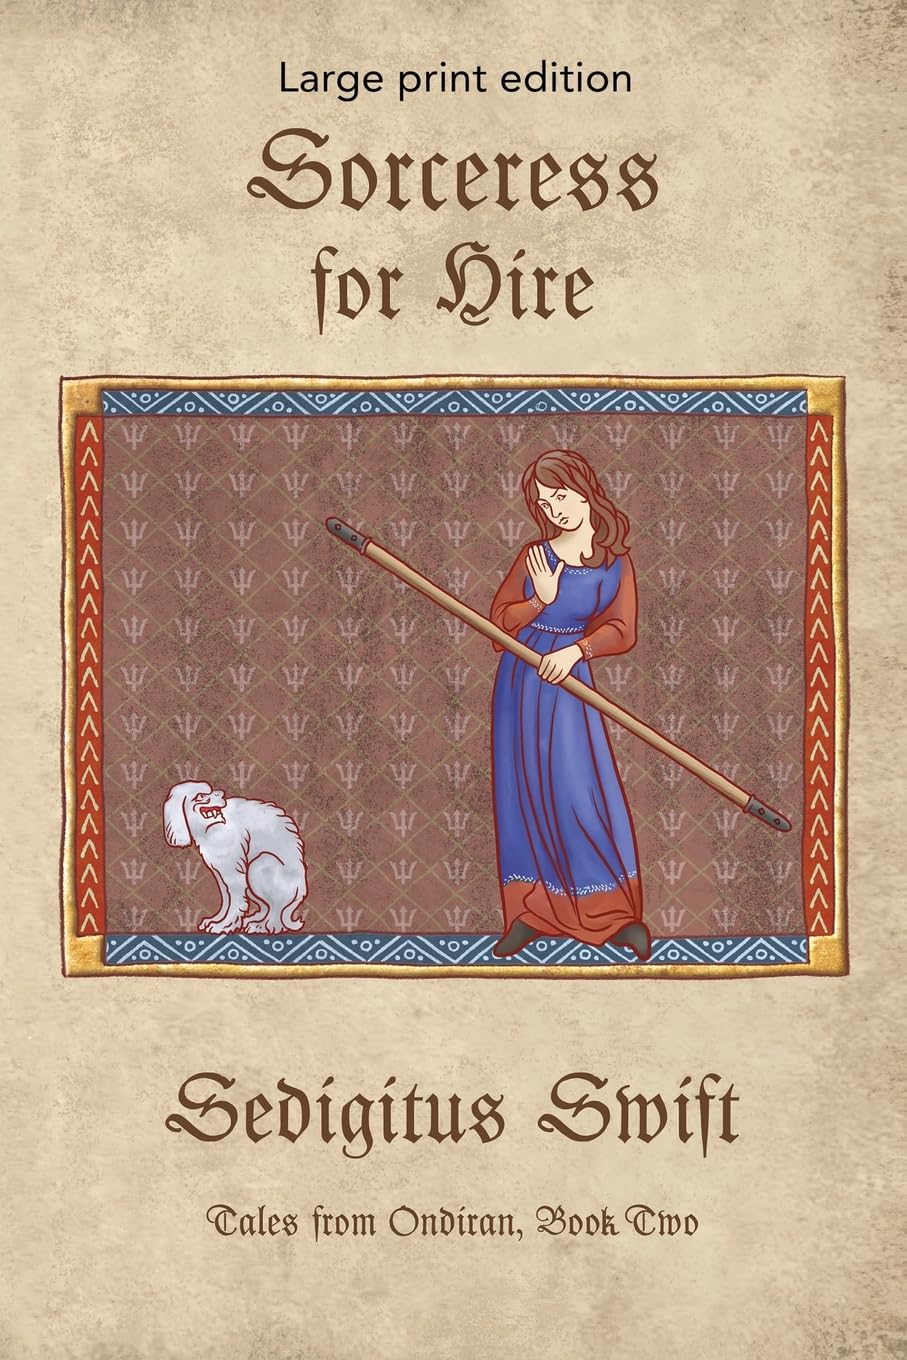 Large print edition
Sorceress
for Hire
Sedigitus Swift
Tales from Ondiran, Book Two